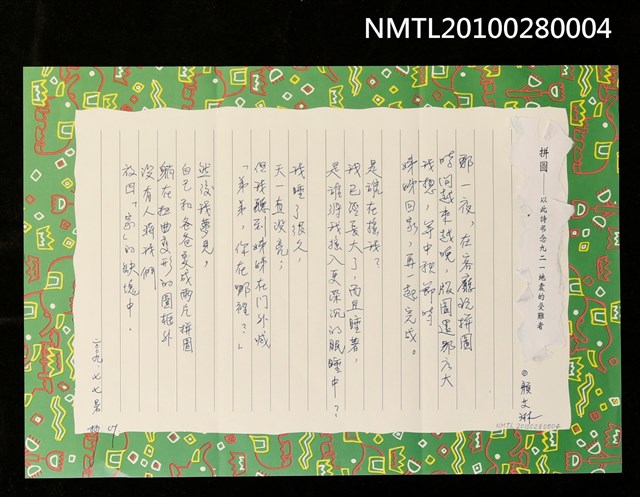 NMTL20100280004
拼圖——以此詩書念九二一地震的受難者
◎顏文琳
那一夜，在客廳玩拼圖
時間越來越晚，版圖還那么大
我想，等中秋節時
姊姊回家，再一起完成。
是誰在搖我？
我已經長大了，而且睡著，
是誰將我搖入更深沉的眠睡中？
我睡了很久，
天一直沒亮；
但我聽到姊姊在門外喊
「弟弟，你在哪裡？」
然後我夢見，
自己和爸爸變成兩片拼圖
躺在扭曲變形的圖框外
沒有人將我們
放回「家」的缺塊中。
二〇〇九、七、七暑
NMTL20100280004